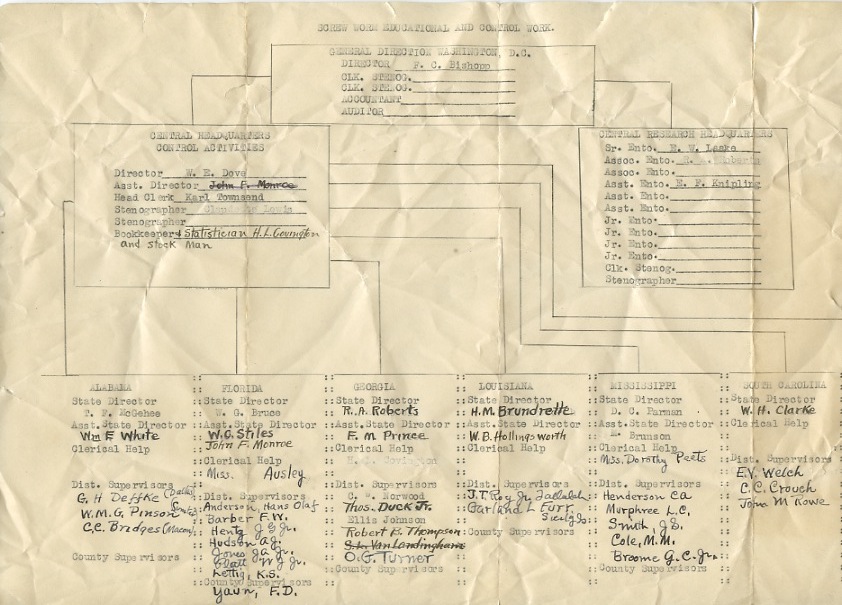 SCREW WORM EDUCATIONAL AND CONTROL WORK.
GENERAL DIRECTION WASHINGTON, D.C.
DIRECTOR F. C. Bishopp
CLK. STENOG.
CLK. STENOG.
ACCOUNTANT
AUDITOR
CENTRAL HEADQUARTERS
CONTROL ACTIVITIES
Director W. E. Dove
Asst. Director John F. Monroe
Head Clerk Karl Townsend
Stenographer Lewis
Stenographer
Bookkeeper & Statistician H.L. Covington
and Stock Man
CENTRAL RESEARCH HEADQUARTERS
Sr. Ento. E. W. Laake
Assoc. Ento. R. A. Roberts
Assoc. Ento.
Asst. Ento. E. F. Knipling
Asst. Ento.
Asst. Ento.
Jr. Ento.
Jr. Ento.
Jr. Ento.
Jr. Ento.
Clk. Stenog.
Stenographer
ALABAMA
State Director
T. F. McGehee
Asst. State Director
Wm E White
Clerical Help
Dist. Supervisors
G. H Deffke
W.M.G. Pinson
C.C. Bridges (Macon)
County Supervisors
FLORIDA
State Director
W. G. Bruce
Asst. State Director
W.O. Stiles
John F. Monroe
Clerical Help
Miss. Ausley
Dist. Supervisors
Anderson, Hans Olaf
Barber F.W.
Hentz J G Jr.
Hudson A.J.
Jones J.A. Jr.
Platt W J Jr.
Lettig, K.S.
County Supervisors
Yawn, F.D.
GEORGIA
State Director
R.A. Roberts
Asst. State Director
F. M Prince
Clerical Help
H. L. Covington
Dist. Supervisors
C. W. Norwood
Thos. Duck Jr.
Ellis Johnson
Robert E. Thompson
S.L. VanLandingham
O.G. Turner
County Supervisors
LOUISIANA
State Director
H.M. Brundrette
Asst. State Director
W.B. Hollingsworth
Clerical Help
Dist. Supervisors
J.T. Roy Jr. Tallulah
Garland L Furr
County Supervisors
MISSISSIPPI
State Director
D. C. Parman
Asst. State Director
Brunson
Clerical Help
Miss. Dorothy Peets
Dist. Supervisors
Henderson CA
Murphree L.C.
Smith, J.S.
Cole, M.M.
Broome G.C. Jr.
County Supervisors
SOUTH CAROLINA
State Director
W. H. Clarke
Asst. State Director
Clerical Help
Dist. Supervisors
E.V. Welch
C.C. Crouch
John M Rowe
County Supervisors